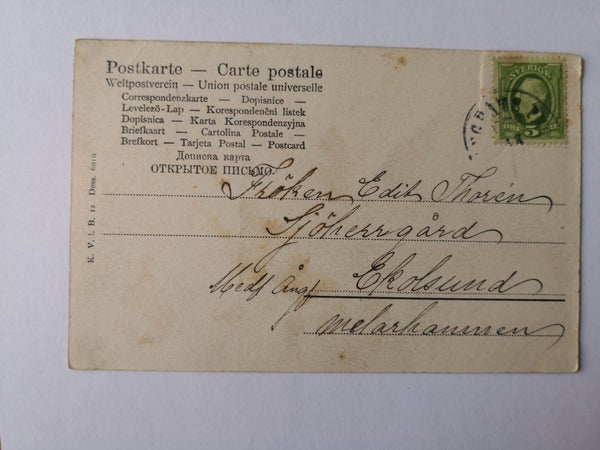 Postkarte — Carte postale
Weltpostverein — Union postale universelle
Correspondenzkarte — Dopisnice —
Levelező-Lap — Korespondenční listek
Dopisnica — Karta Korespondenzyjna
Briefkaart — Cartolina Postale —
Brefkort — Tarjeta Postal — Postcard
Дописна карта
ОТКРЫТОЕ ПИСЬМО.
SVERIGE
5
Fröken Edit Thorén
Sjöherrgård
Medf Ångf Ekolsund
melarhamnen
K. V. i. B. 12 Dess.